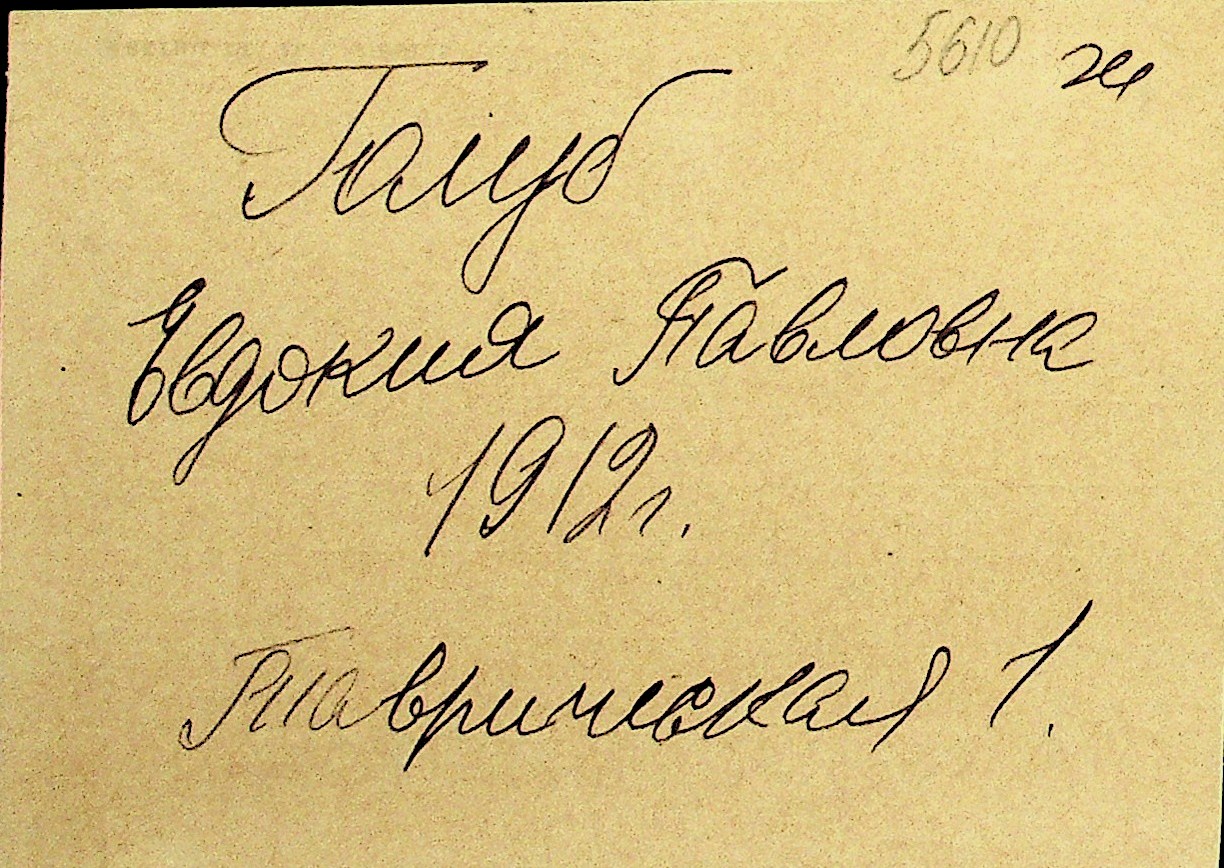 5610 ж
Голуб
Евдокия Павловна
1912г.
Таврическая 1.